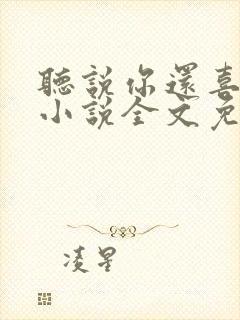 聽說你還喜
小說全文免
凌星